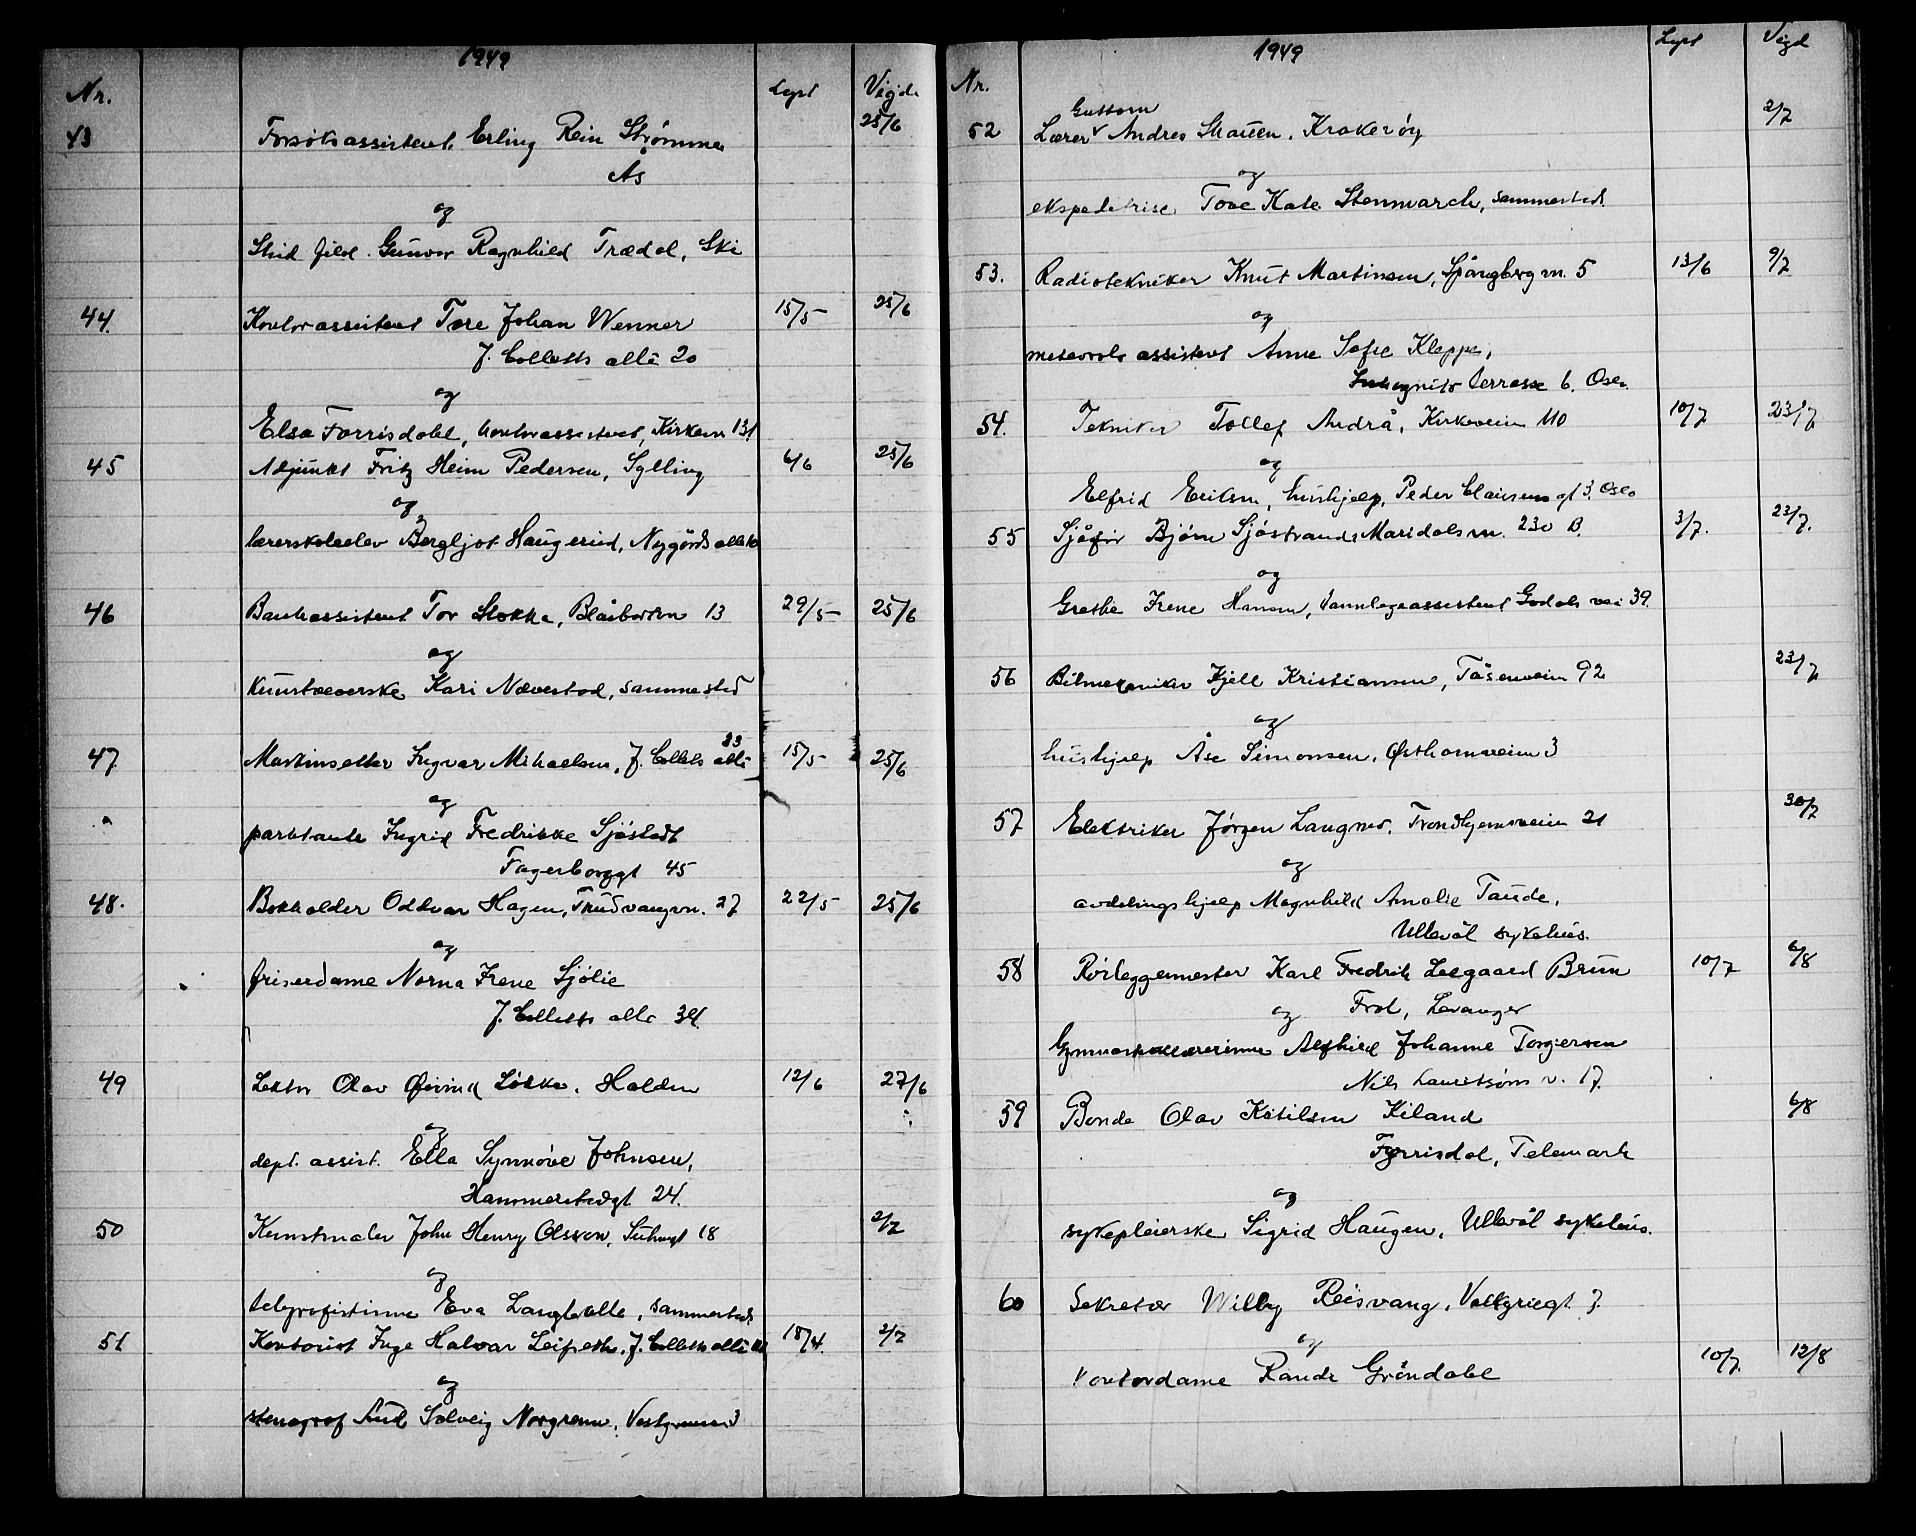 1949
Nr. Lyst Vigd.
43 Forsøksassistent Erling Rein Strømme 25/6
Ås
og
Stud. filol. Gunvor Ragnhild Trædal, Ski
44 Kontorassistent Tore Johan Wenner 15/5 25/6
J. Colletts allé 20
og
Elsa Forrisdahl, kontorassistent, Kirkevn 131
45 Adjunkt Fritz Heim Pedersen, Sylling 6/6 25/6
og
lærerskoleelev Bergljot Haugerud, Nygårds allé
46 Bankassistent Tor Stokka, Blåbærvn 13 29/5 25/6
og
kunstvæverske Kari Nævestad, sammested
23
47 Ingvar Mikaelsen, J. Colletts allé 15/5 25/6
og
parktante Ingrid Fredrikke Sjöstedt
Fagerborggt 45
48. Bokholder Oddvar Hagen, Thrudvangvn. 27 22/5 25/6
og
friserdame Norna Irene Sjölie
J. Colletts allé 34.
49 Lektor Olav Øivind, Halden 12/6 27/6
og
dept. assist. Ella Synnöve Johnsen,
Hammerstadgt 24.
50 Kunstmaler John Henry Olsson, Suhmgt 18 2/7
og
telegrafistinne Eva Langballe, sammesteds
51 Kontorist Inge Halvar Leifseth, J. Colletts allé 18/4. 2/7
og
stenograf Aud Solveig Norgrenn,
1949
Nr. Lyst Vigd
Guttorm
52 Lærer v Andres Skauen, Krokerøy 2/7
og
ekspeditrise Tove Kate Stenmarck, sammesteds.
53. Radiotekniker Knut Martinsen, Spångbergvn. 5 13/6 9/7
og
meteorolo assistent Anne Sofie Kleppe,
Inkognito terrasse 6, Oslo
54. Tekniker Tollef Andrå, Kirkeveien 110 10/7 23/7
og
Elfrid Eriksen, hushjelp, Peder Claussøns gt 3, Oslo
55 Sjåfør Bjørn Sjöstrand, Maridalsvn. 230 B. 3/7. 23/7.
og
Grethe Irene Hansen, tannlegeassistent Godals vei 39.
56 Bilmekaniker Kjell Kristiansen, Tåsenveien 92 23/7
og
hushjelp Åse Simonsen, Østhornveien 3
57 Elektriker Jørgen Langnes, Trondhjemsveien 21 30/7
og
avdelingshjelp Magnhild Amalie Taude,
Ullevål sykehus.
58 Rörleggermester Karl Fredrik Leegaard Brun 10/7 6/8
og Frol, Levanger
Gymnastikklærerinne Alfhild Johanne Torgersen
Nils Lauritsøns v. 17.
59 Bonde Olav Ketilsen Kiland 6/8
Fyrrisdal, Telemark
og
sykepleierske Sigrid Haugen, Ullevål sykehus.
60 Sekretær Willy Reisvang, Valkyriegt 7.
og
kontordame Randi Gröndahl 10/7. 12/8